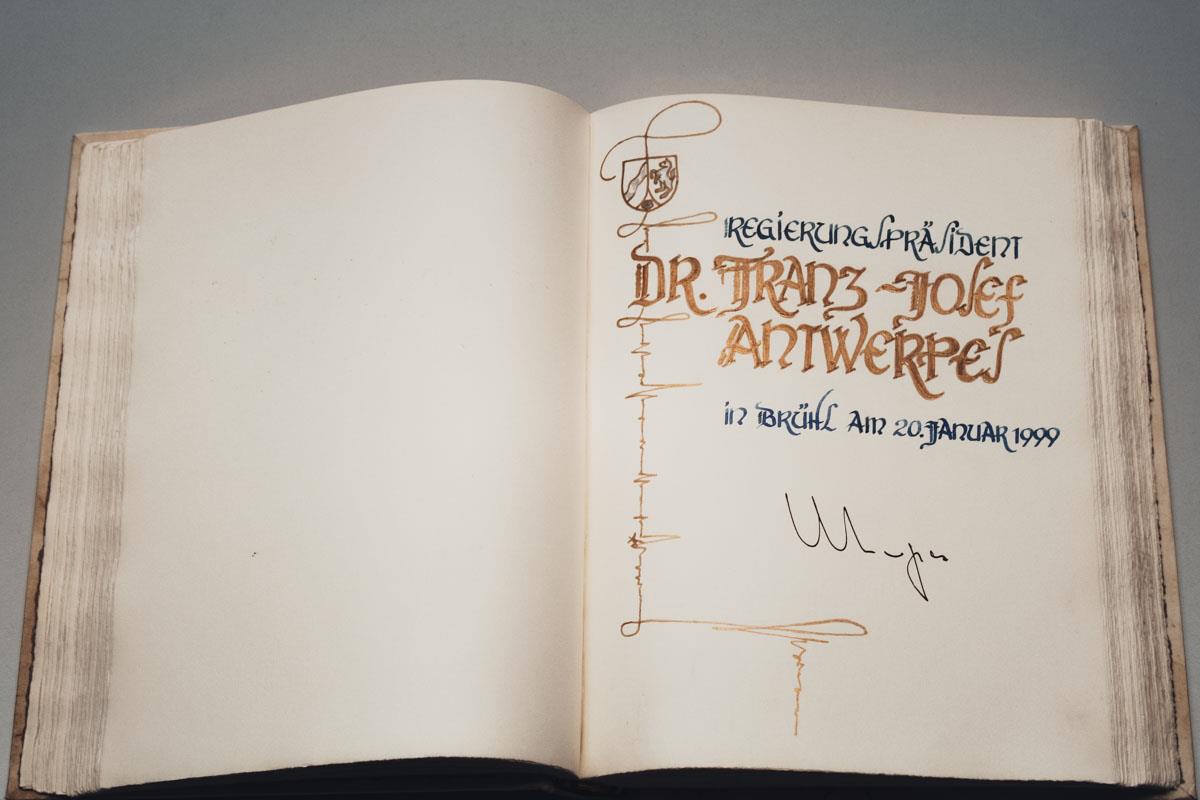 REGIERUNGSPRÄSIDENT
DR. FRANZ-JOSEF
ANTWERPES
in BRÜHL AM 20. JANUAR 1999